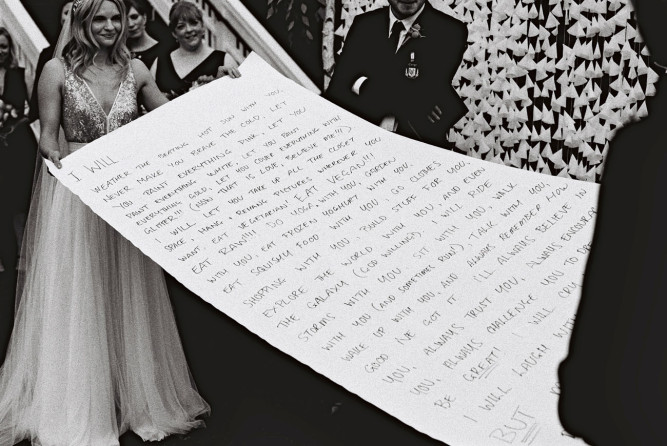 I WILL
WEATHER THE BEATING HOT SUN WITH YOU,
NEVER MAKE YOU BRAVE THE COLD, LET
YOU PAINT EVERYTHING PINK, LET YOU
PAINT EVERYTHING WHITE, LET YOU PAINT
EVERYTHING GOLD, LET YOU COVER EVERYTHING WITH
GLITTER!!! (AND THAT IS LOVE, BELIEVE ME!!!)
I WILL LET YOU TAKE UP ALL THE CLOSET
SPACE, HANG, & REHANG PICTURES WHEREVER YOU
WANT. EAT VEGETARIAN! EAT VEGAN!!!
EAT RAW!!!! DO YOGA WITH YOU, GARDEN
WITH YOU, EAT FROZEN YOGHURT WITH YOU,
EAT SQUISHY FOOD WITH YOU, GO CLOTHES
SHOPPING WITH YOU, BUILD STUFF FOR YOU,
EXPLORE THE WORLD WITH YOU, AND EVEN
THE GALAXY (GOD WILLING). I WILL RIDE
STORMS WITH YOU, SIT WITH YOU, WALK
WITH YOU (AND SOMETIMES RUN!), TALK WITH YOU,
WAKE UP WITH YOU, AND ALWAYS REMEMBER HOW
GOOD I'VE GOT IT. I'LL ALWAYS BELIEVE IN
YOU, ALWAYS TRUST YOU, ALWAYS ENCOURAGE
YOU, ALWAYS CHALLENGE YOU TO
BE GREAT! I WILL CRY
I WILL LAUGH WITH
BUT